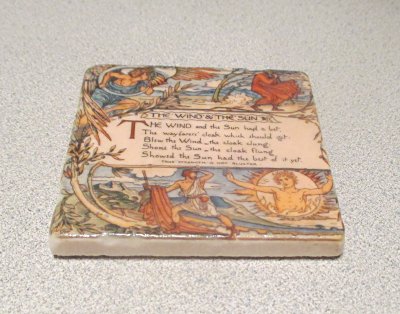 THE WIND & THE SUN
THE WIND and the Sun had a bet,
The wayfarers' cloak which should get:
Blew the Wind—the cloak clung:
Shone the Sun—the cloak flung
Showed the Sun had the best of it yet.
TRUE STRENGTH IS NOT BLUSTER